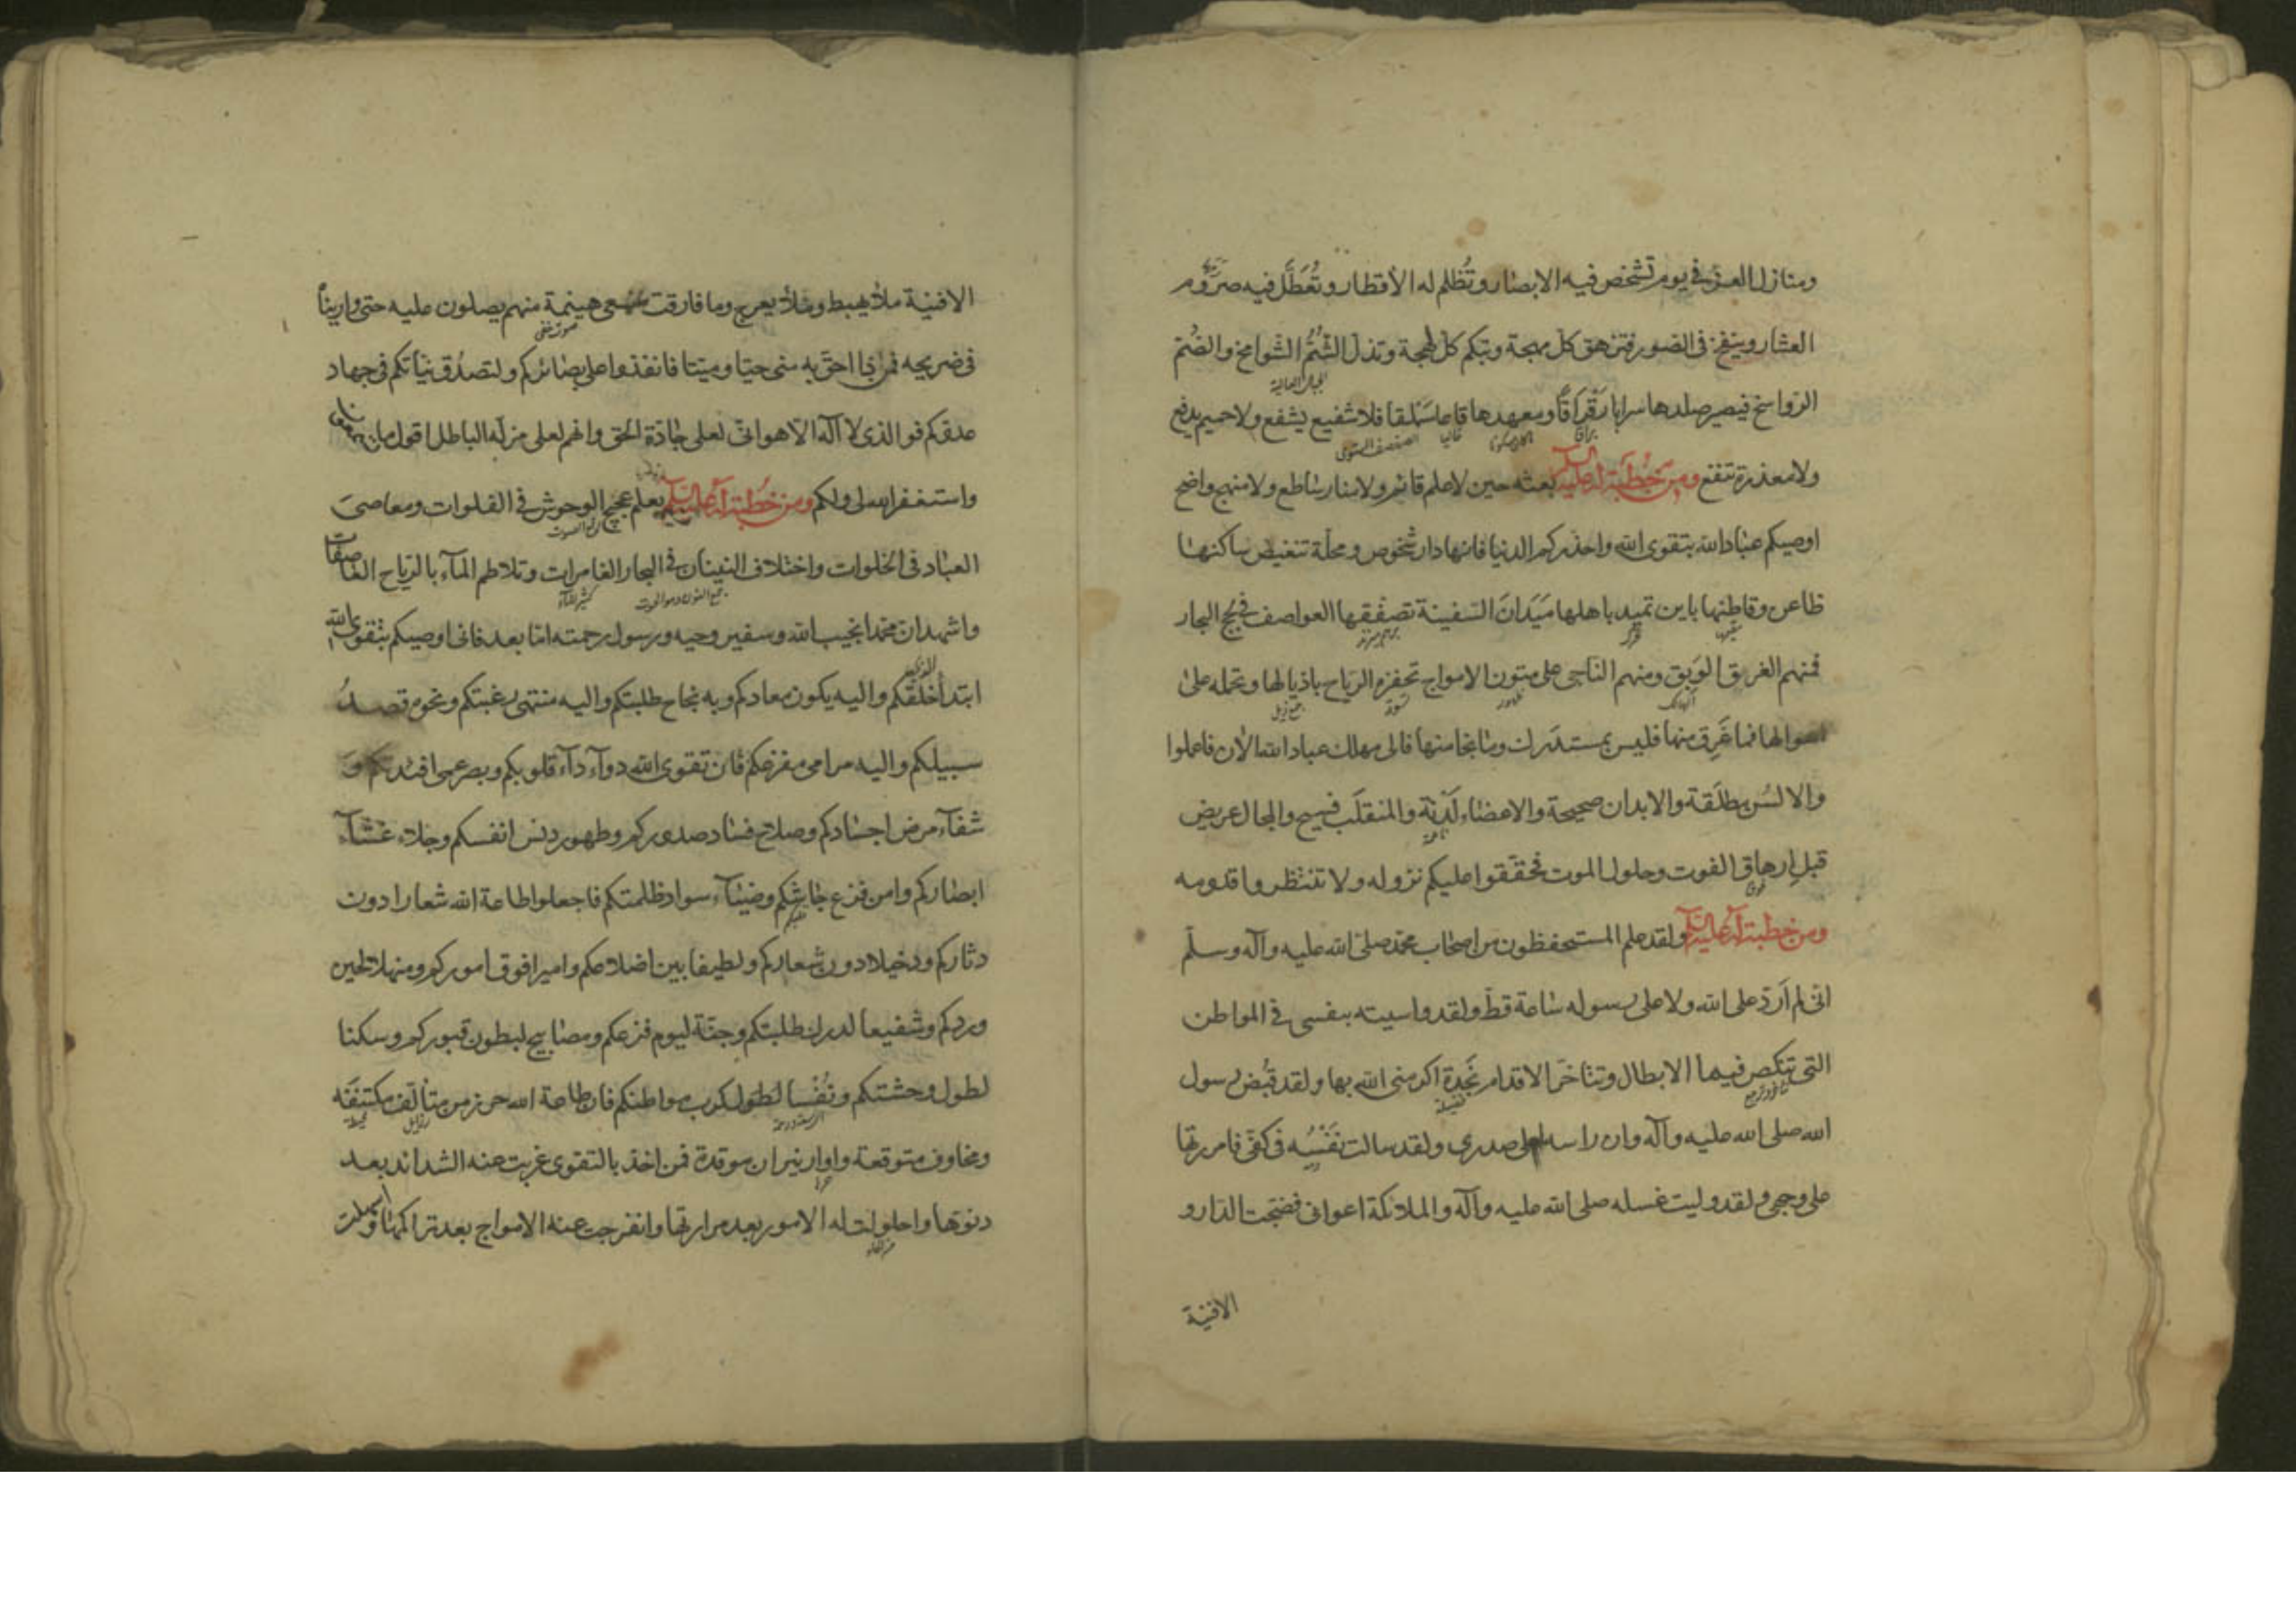 ومنازل العز في يوم تشخص فيه الابصار وتُظلم له الأقطار وتُعَطَّل فيه صروم
العشار وينفخ فى الصور فتزهق كل مهجة وتبكم كل لهجة وتذل الشُّمُّ الشوامخ والصُّم
الجبال العالية
الرواسخ فيصير صلدها سرابا رَقْرَاقًا ومعهدها قاعا سَمْلَقا فلا شفيع يشفع ولا حميم يدفع
الصفصف المستوى
ولا معذرة تنفع ومن خُطْبَة له عليه السلم بعثه حين لا علم قائم ولا منار ساطع ولا منهج واضح
اوصيكم عباد الله بتقوى الله واحذركم الدنيا فانها دار شخوص ومحلة تنغيص ساكنها
ظاعن وقاطنها باين تميد باهلها مَيَدَانَ السفينة تصفقها العواصف فى لجج البحار
فمنهم الغريق الوَبِق ومنهم الناجى على متون الامواج تحفزه الرياح باذيالها وتحمله على
الهالك
اهوالها فما غَرِق منها فليس بمستدرك وما نجا منها فالى مهلك عباد الله الان فاعملوا
والالسُن مطلَقة والابدان صحيحة والاعضاء لَدْنة والمنقلَب فسيح والمجال عريض
قبل إرهاق الفوت وحلول الموت فحققوا عليكم نزوله ولا تنتظروا قدومه
ومن خطبة له عليه السلم ولقد علم المستحفظون من اصحاب محمد صلى الله عليه وآله وسلم
انى لم اَردّ على الله ولا على رسوله ساعة قط ولقد واسيته بنفسى فى المواطن
التى تنكص فيها الابطال وتتاخر الاقدام نَجدة اكرمنى الله بها ولقد قُبض رسول
الله صلى الله عليه وآله وان راسه لعلى صدرى ولقد سالت نَفْسُه فى كفى فامررتها
على وجهى ولقد وليت غسله صلى الله عليه وآله والملائكة اعوانى فضجت الدار و
الافنية
الافنية ملأ يهبط وملأ يعرج وما فارقت سمعى هينمة منهم يصلون عليه حتى واريناه
صوت خفى
فى ضريحه فمن ذا احق به منى حيا وميتا فانفذوا على بصائركم ولتصدُق نياتكم فى جهاد
عدوكم فوالذى لا اله الا هو انى لعلى جادة الحق وانهم لعلى مزلة الباطل اقول ما تسمعون
واستغفر الله لى ولكم ومن خُطبة له عليه السلم يعلم عجيج الوحوش فى الفلوات ومعاصىَ
العباد فى الخلوات واختلاف النينان فى البحار الغامرات وتلاطم المآء بالرياح العاصفات
جمع النون وهو الحوت
واشهد ان محمدا نجيب الله وسفير وحيه ورسول رحمته اما بعد فانى اوصيكم بتقوى الله
الذى
ابتدأ خلقكم واليه يكون معادكم وبه نجاح طلبتكم واليه منتهى رغبتكم ونحوه قصدُ
سبيلكم واليه مرامى مفزعكم فان تقوى الله دوآء دآء قلوبكم وبصر عمى افئدتكم و
شفآء مرض اجسادكم وصلاح فساد صدوركم وطهور دنس انفسكم وجلاء غشآء
ابصاركم وامن فزع جاشكم وضيآء سواد ظلمتكم فاجعلوا طاعة الله شعارا دون
دثاركم ودخيلا دون شعاركم ولطيفا بين اضلاعكم واميرا فوق اموركم ومنهلا لحين
وردكم وشفيعا لدرك طلبتكم وجنة ليوم فزعكم ومصابيح لبطون قبوركم وسكنا
لطول وحشتكم ونُفْسا لطول كرب مواطنكم فان طاعة الله حرز من متالف مكتنفة
ومخاوف متوقعة واوار نيران موقدة فمن اخذ بالتقوى غربت عنه الشدائد بعد
دنوها واحلولت له الامور بعد مرارتها وانفرجت عنه الامواج بعد تراكمها واسهلت